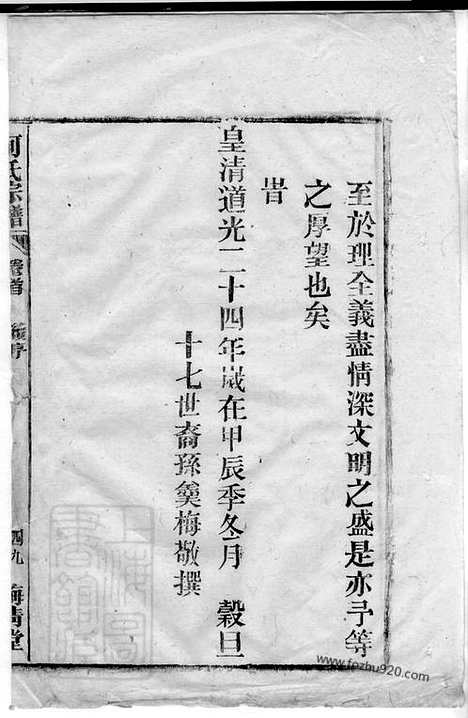 至於理全義盡情深文明之盛是亦予等
之厚望也矣
旹
皇清道光二十四年歲在甲辰季冬月 穀旦
十七世裔孫奠梅敬撰
何氏宗譜 卷首 序 四九
www.fozhu920.com